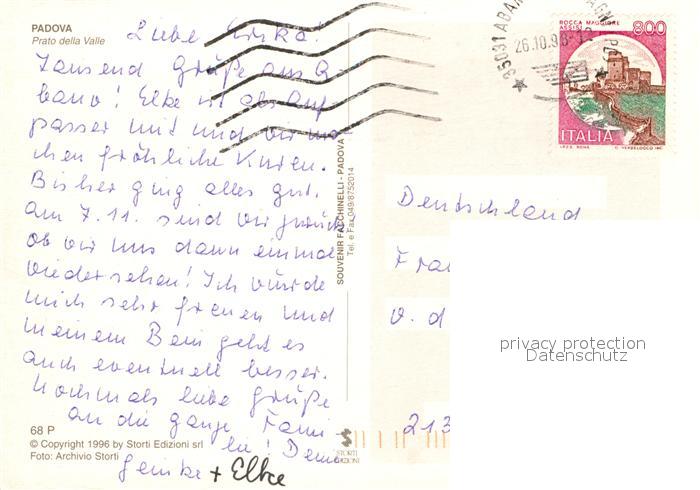 PADOVA
Prato della Valle
Liebe Erika!
Tausend Grüße aus A-
bano! Elke ist als Auf-
passer mit und wir ma-
chen fröhliche Kuren.
Bisher ging alles gut.
Am 7.11. sind wir zurück
ob wir uns dann einmal
wiedersehen! Ich würde
mich sehr freuen und
meinem Bein geht es
auch eventuell besser.
Nochmals liebe Grüße
an die ganze Fami-
lie! Deine
+ Elke
68 P
© Copyright 1996 by Storti Edizioni srl
Foto: Archivio Storti
SOUVENIR FACCHINELLI - PADOVA
Tel. e Fax 049/8752014
STORTI
EDIZIONI
35031 ABANO
26.10.9
ROCCA MAGGIORE
ASSISI
800
ITALIA
I.P.Z.S. ROMA
Deutschland
v. d
213
privacy protection
Datenschutz